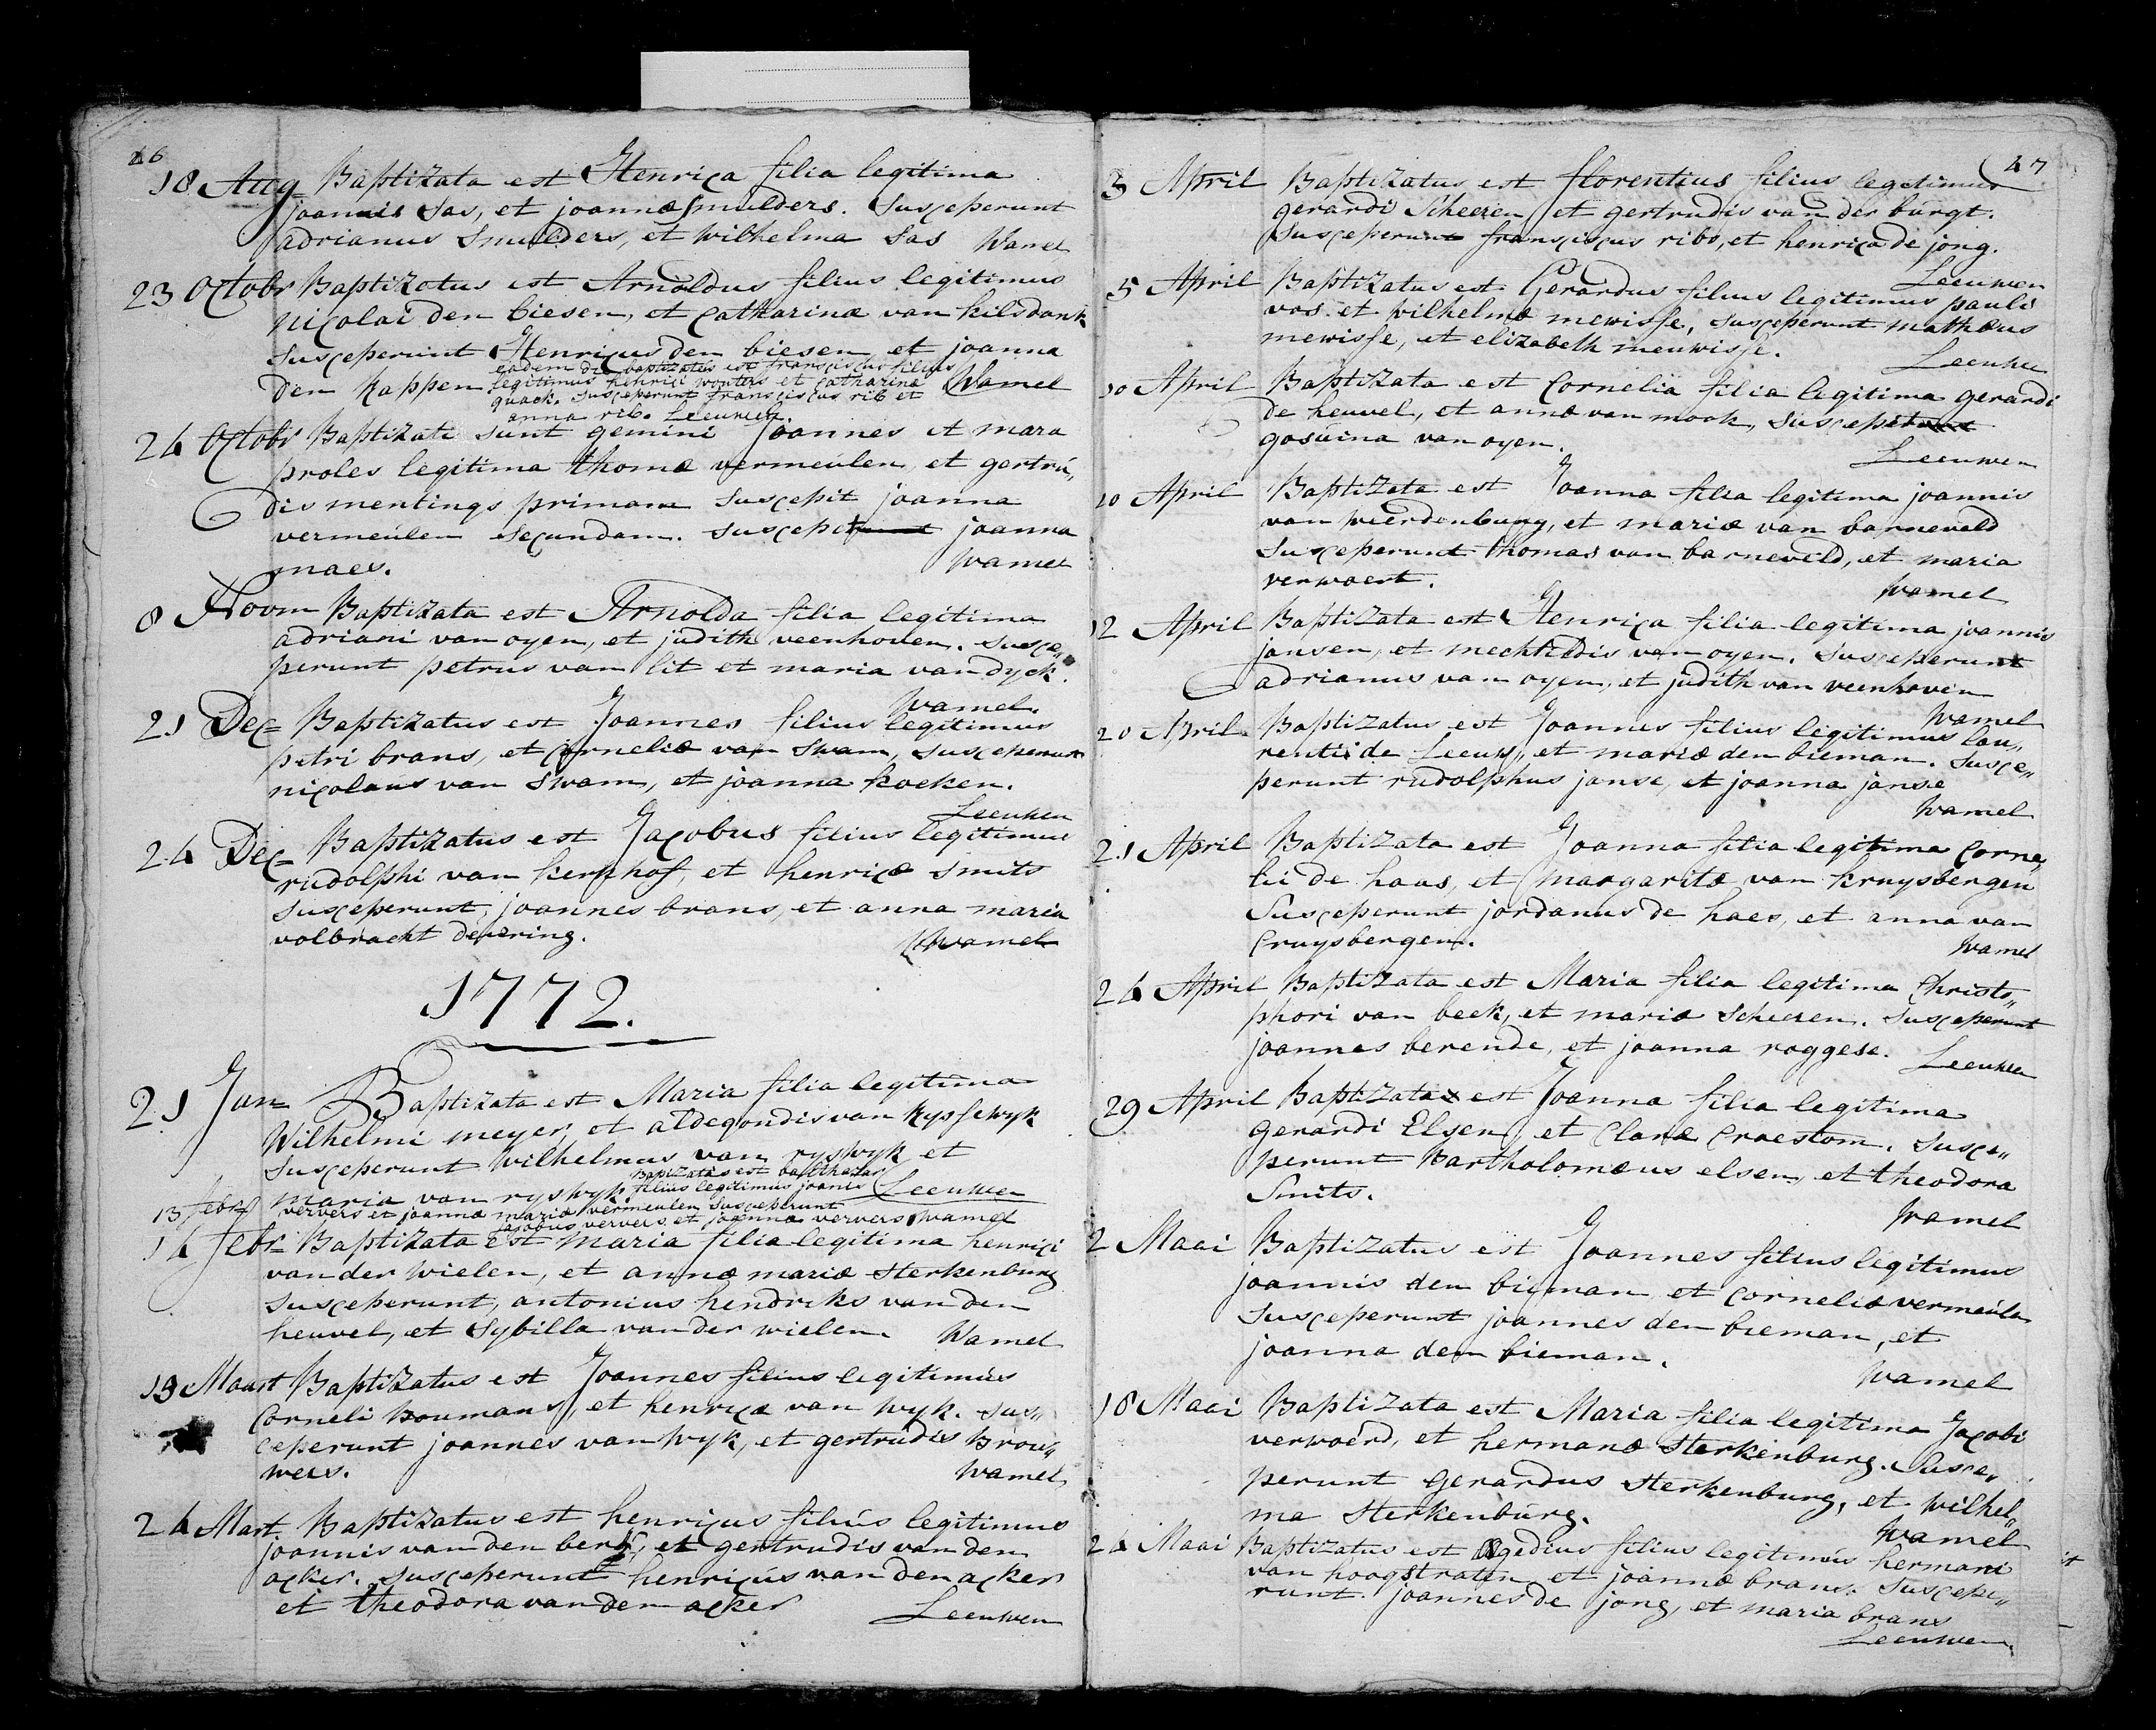 46
18 Aug= Baptizata est Henrica filia legitima
joannis Sas, et joannæ smulders. Susceperunt
adrianus Smulders, et Wilhelma Sas Wamel
23 Octobr Baptizatus est Arnoldus filius legitimus
Nicolai den biesen, et Catharinæ van kilsdonk
Susceperunt Henricus den biesen et joanna
eadem die baptizatus est franciscus filius
den kappen legitimus henrici wouters et catharinæ Wamel
quack. Susceperunt franciscus rib et
anna rib. Leeuwen.
24 Octobr Baptizati sunt gemini Joannes et mara
proles legitima thomæ vermeulen, et gertru„
dis mentings primam Suscepit joanna
vermeulen Secundam. Suscepit joanna
maes. Wamel
8 Novm Baptizata est Arnolda filia legitima
adriani van oyen, et judith veenhoven. Susce„
perunt petrus van lit et maria van dyck.
Wamel.
21 Dec= Baptizatus est Joannes filius legitimus
petri brans, et corneliæ van Swam, Susceperunt
nicolaus van Swam, et joanna koeken.
Leeuwen
24 Dec= Baptizatus est Jacobus filius legitimus
rudolphi van kerkhof, et henricæ Smits
Susceperunt, joannes brans, et anna maria
volbracht detering. Wamel
1772.
21 Jan= Baptizata est Maria filia legitima
Wilhelmi meyer, et aldegondis van Rysswyk
Susceperunt Wilhelmus van ryswyk et
Baptizatus est balthazar
maria van ryswyk. filius legitimus joanis Leeuwen
13 febr ververs et joannæ mariæ vermeulen Susceperunt
jacobus ververs et joanna ververs Wamel
14 febr= Baptizata est maria filia legitima henrici
van der wielen, et annæ mariæ Sterkenburg
Susceperunt, antonius hendriks van den
heuvel, et Sybilla van der wielen. Wamel
13 Maart Baptizatus est Joannes filius legitimus
Corneli boumans, et henricæ van wyk. Sus„
ceperunt joannes van Wyk, et gertrudis brou„
wers. Wamel
24 Mart. Baptizatus est henricus filius legitimus
joannis van den berg, et gertrudis van den
acker. Susceperunt henricus van den acker
et theodora van den acker Leeuwen
47
3 April Baptizatus est florentius filius legitimus
gerardi Scheeren et gertrudis van der burgt.
Susceperunt franciscus ribs, et henrica de jong.
Leeuwen
5 April Baptizatus est Gerardus filius legitimus pauli
vos. et wilhelmæ mewisse, Susceperunt mathæus
mewisse, et elizabeth meuwisse.
Leeuwen
10 April Baptizata est Cornelia filia legitima gerardi
de heuvel, et annæ van mook, Suscepit
gosuina van oyen.
Leeuwen
10 April Baptizata est Joanna filia legitima joannis
van weerdenburg, et mariæ van barneveld
Susceperunt thomas van barneveld, et maria
verwaert.
Wamel
12 April Baptizata est Henrica filia legitima joannis
jansen, et mechtildis van oyen. Susceperunt
adrianus van oyen, et judith van veenhoven
Wamel
20 April Baptizatus est Joannes filius legitimus lau„
rentii de Leeuw, et mariæ den bieman. Susce„
perunt rudolphus janse, et joanna janse
Wamel
21 April Baptizata est Joanna filia legitima Corne„
lii de haas, et margaritæ van kruysbergen
Susceperunt jordanus de haes, et anna van
Cruysbergen.
Wamel
24 April Baptizata est Maria filia legitima Christo„
phori van beek, et mariæ Scheeren. Susceperunt
joannes berende, et joanna roggese.
Leeuwen
29 April Baptizata est Joanna filia legitima
Gerardi Elsen, et Claræ Craestom. Susce„
perunt Bartholomæus elsen, et theodora
Smits.
Wamel
2 Maai Baptizatus est Joannes filius legitimus
joannis den bieman et Corneliæ vermeulen
Susceperunt joannes den bieman, et
joanna den bieman.
Wamel
18 Maai Baptizata est Maria filia legitima Jacobi
verwoerd, et hermanæ Sterkenburg. Susce„
perunt Gerardus Sterkenburg, et Wilhel„
ma Sterkenburg.
Wamel
24 Maai Baptizatus est Ægedius filius legitimus hermani
van hoogstraten et joannæ brans. Suscepe„
runt. joannes de jong, et maria brans
Leeuwen.